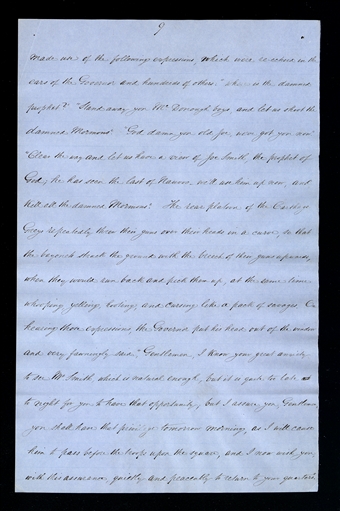 9
made use of the following expressions, which were re-echoed in the
ears of the Governor and hundreds of others. "Where is the damned
prophet?" "Stand away you McDonough boys, and let us shoot the
damned Mormons" "God damn you old Joe, we've got you now"
"Clear the way and let us have a view of Joe Smith, the prophet of
God, he has seen the last of Nauvoo, we'll use him up now, and
kill all the damned Mormons". The rear platoon of the Carthage
Greys repeatedly threw their guns over their heads in a curve, so that
the bayonets struck the ground with the breech of their guns upwards,
when they would run back and pick them up, at the same time
whooping, yelling, hooting, and cursing like a pack of savages. On
hearing these expressions, the Governor put his head out of the window
and very fawningly said. "Gentlemen, I know your great anxiety
to see Mr Smith, which is natural enough, but it is quite too late
to night for you to have that opportunity, but I assure you, Gentlemen,
you shall have that privilege tomorrow morning, as I will cause
him to pass before the troops upon the square, and I now wish you,
with this assurance, quietly and peaceably to return to your quarters".